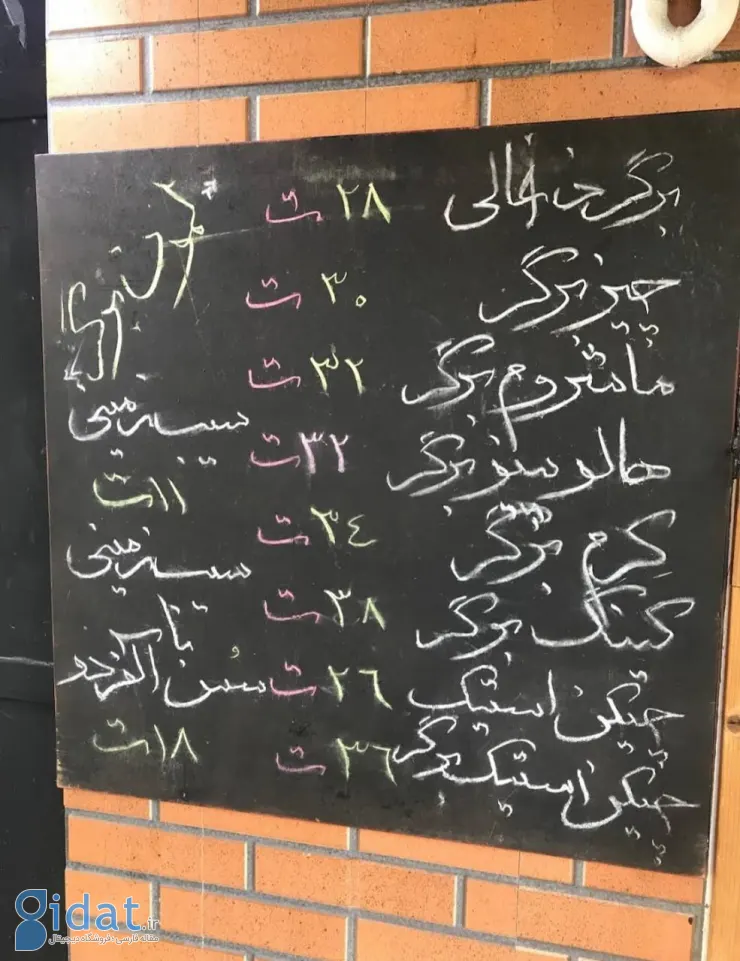 برگر ۲۸ ت
چیز برگر ۳۰ ت
ماشروم برگر ۳۲ ت
هالوپینو برگر ۳۲ ت
کرم برگر ۳۴ ت
کینگ برگر ۳۸ ت
چیکن استیک ۲۶ ت
چیکن استیک برگر ۳۶ ت
سیب زمینی
۱۱ ت
سیب زمینی
با
سس آلفردو
۱۸ ت
gidat.ir
مقاله فارسی، فروشگاه دیجیتال